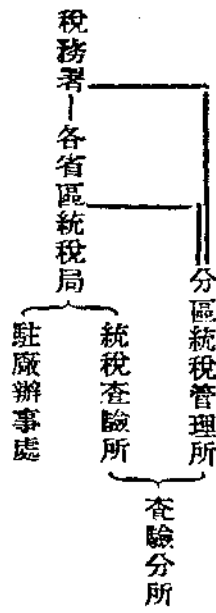 稅務署
各省區統稅局
分區統稅管理所
統稅查驗所
駐廠辦事處
查驗分所